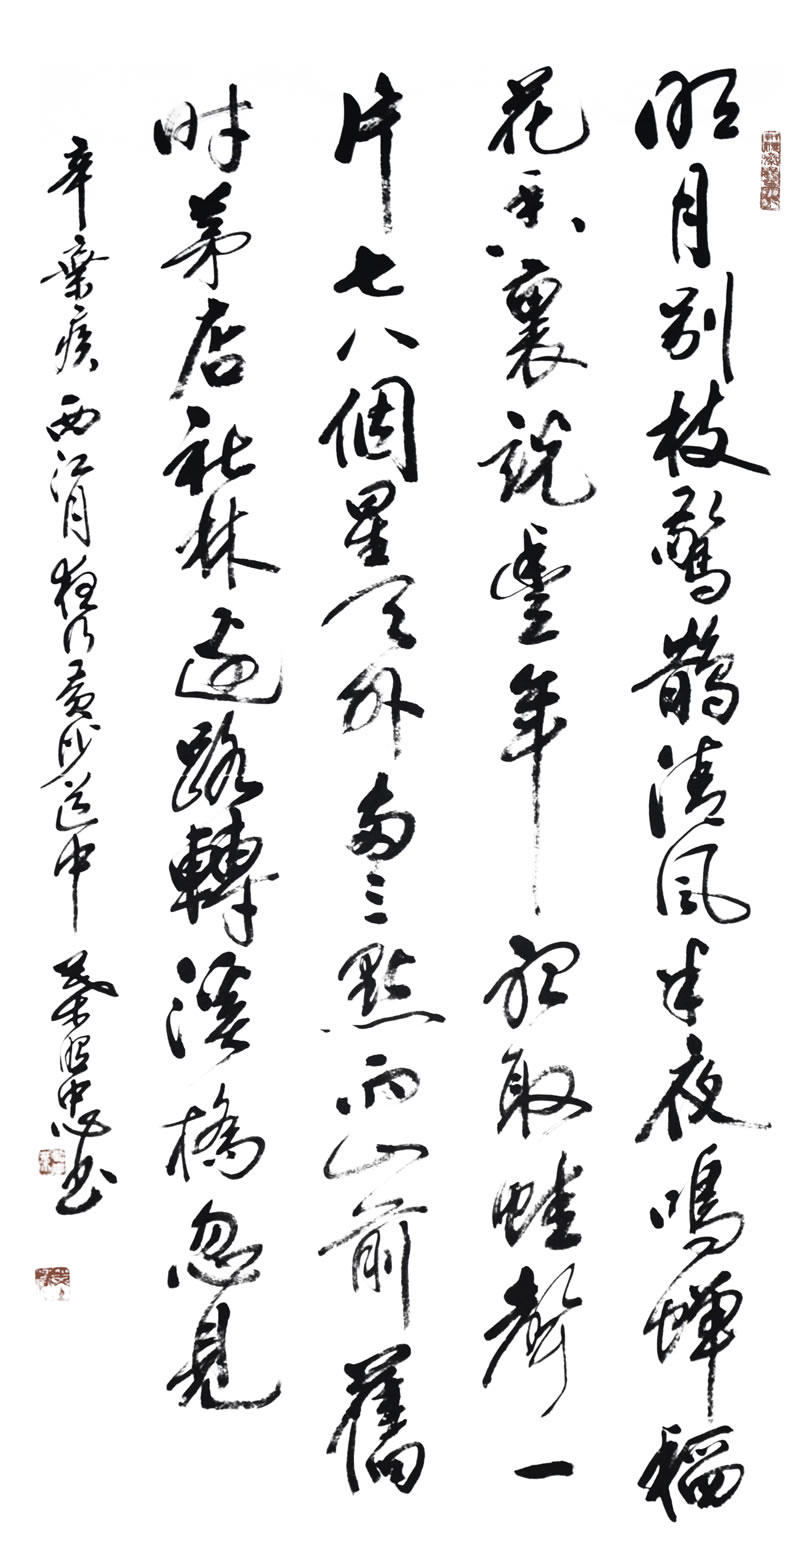 明月別枝驚鵲清風半夜鳴蟬稻
花香裏說豐年聽取蛙聲一
片七八個星天外兩三點雨山前舊
時茅店社林邊路轉溪橋忽見
辛棄疾西江月夜行黃沙道中 忠书